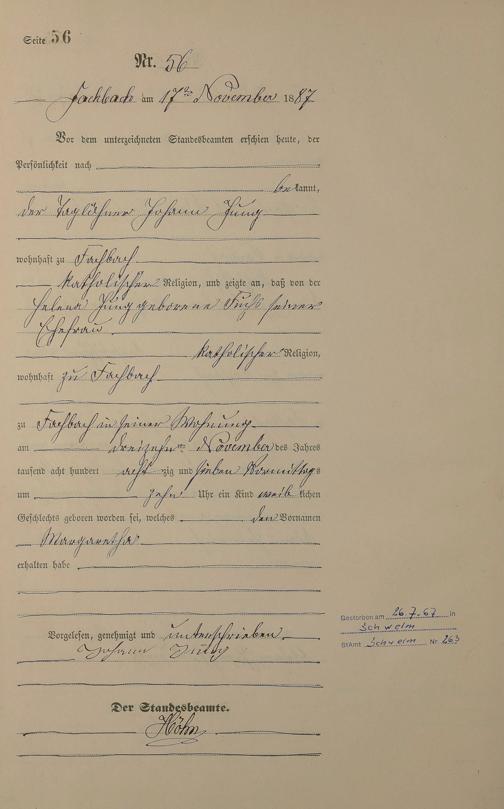 Seite 56
Nr. 56
Fachbach am 17ten November 1887
Vor dem unterzeichneten Standesbeamten erschien heute, der
Persönlichkeit nach
bekannt,
der Taglöhner Johann Jung
wohnhaft zu Fachbach
katholischer Religion, und zeigte an, daß von der
Helena Jung geborene Fuchs seiner
Ehefrau
katholischer Religion,
wohnhaft zu Fachbach
zu Fachbach in seiner Wohnung
am dreizehnten November des Jahres
tausend acht hundert acht zig und sieben Vormittags
um zehn Uhr ein Kind weiblichen
Geschlechts geboren worden sei, welches den Vornamen
Margaretha
erhalten habe
Vorgelesen, genehmigt und unterschrieben
Johann Jung
Der Standesbeamte.
Höhn
Gestorben am 26.7.67 in
Schwelm
StAmt Schwelm Nr 263